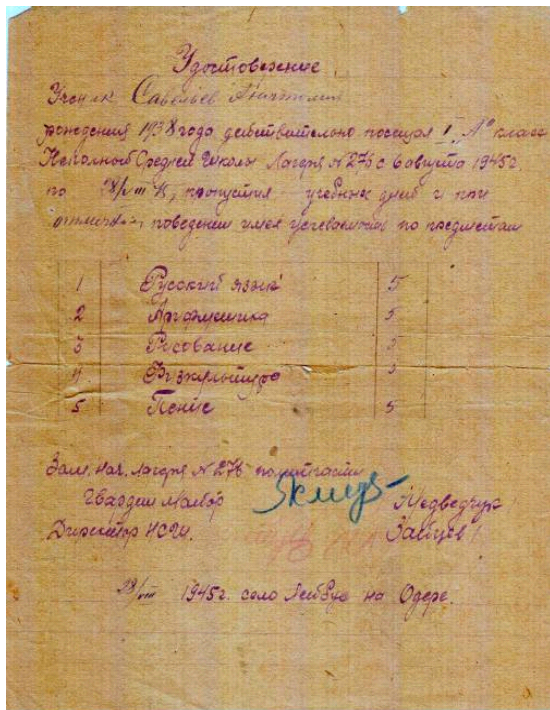 Удостоверение
Ученик Савельев Анатолий
рождения 1938 года действительно посещал I "А" класс
Неполной Средней Школы Лагеря N 276 с 6 августа 1945г.
по 28/VIII 45, пропустил - учебных дней и при
отличном поведении имел успеваемость по предметам
1 Русский язык 5
2 Арифметика 5
3 Рисование
4 Физкультура
5 Пение 5
Зам. нач. лагеря N 276 по политчасти
Гвардии майор Медведчук
Директор НСШ. Зайцев
28/VIII 1945г. село на Одере.